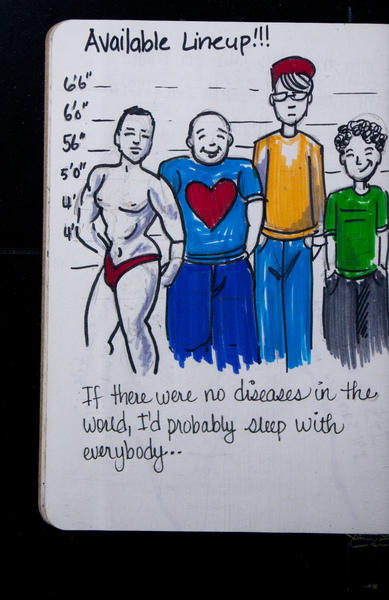 Available Lineup!!!
6'6"
6'0"
5'6"
5'0"
4'
4'
If there were no diseases in the
world, I'd probably sleep with
everybody...